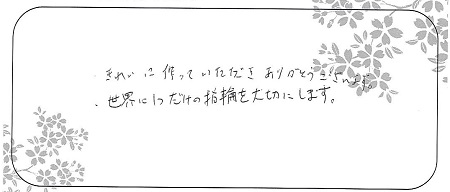 ・きれいに作っていただきありがとうございます。
・世界に1つだけの指輪を大切にします。